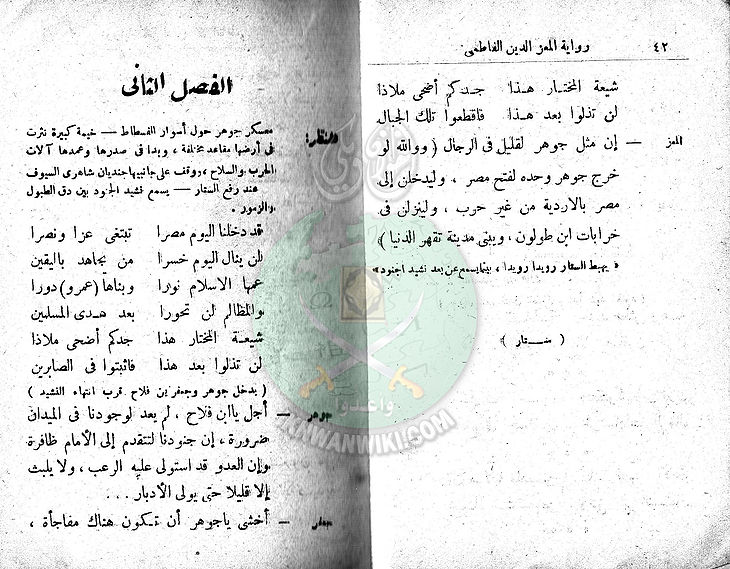 ٤٢
رواية المعز الدين الفاطمى
شيعة المختار هذا جدكم أضحى ملاذا
لن تذلوا بعد هذا فاقطعوا تلك الجبال
المعز — إن مثل جوهر لقليل فى الرجال ( ووالله لو
خرج جوهر وحده لفتح مصر ، وليدخلن إلى
مصر بالاردية من غير حرب ، ولينزلن فى
خرابات ابن طولون ، ويبنى مدينة تقهر الدنيا )
« يهبط الستار رويدا رويدا ، بينما يسمع عن بعد نشيد الجنود »
( ستار )
الفصل الثانى
المنظر : معسكر جوهر حول أسوار الفسطاط — خيمة كبيرة نثرت
فى أرضها مقاعد مختلفة ، وبدا فى صدرها وعمدها آلات
الحرب والسلاح ، ووقف على جانبيها جنديان شاهرى السيوف
عند رفع الستار — يسمع نشيد الجنود بين دق الطبول
والزمور .
قد دخلنا اليوم مصرا نبتغى عزا ونصرا
لن ينال اليوم خسرا من يجاهد باليقين
عمها الاسلام نورا وبناها (عمرو) دورا
والمظالم لن تحورا بعد هدى المسلمين
شيعة المختار هذا جدكم أضحى ملاذا
لن تذلوا بعد هذا فاثبتوا فى الصابرين
( يدخل جوهر وجعفر بن فلاح قرب انتهاء النشيد )
جوهر — أجل يا ابن فلاح ، لم يعد لوجودنا فى الميدان
ضرورة ، إن جنودنا لتتقدم إلى الأمام ظافرة
وإن العدو قد استولى عليه الرعب ، ولا يلبث
إلا قليلا حتى يولى الأدبار ...
جعفر — أخشى ياجوهر أن تكون هناك مفاجأة ،
واعدوا
IKHWANWIKI.COM